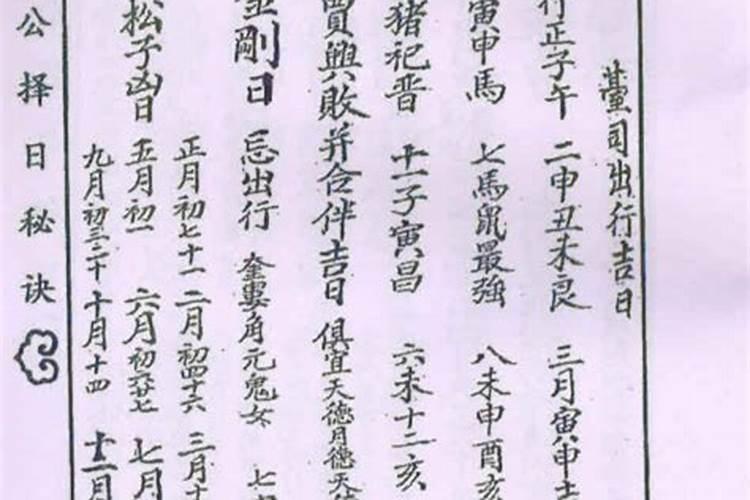 臺司出行吉日
行正子午 二申丑未良 三月寅申
寅申馬 七馬鼠最強 八未申酉亥
猪祀晋 十一子寅昌 六未十二亥
賈興敗并合伴吉日 俱宜天德月德天德
金剛日 忌出行 奎婁角亢鬼女 七
正月初七十一 二月初四十六 三月十
松子凶日 五月初一 六月初 七月
九月初三二十 十月十四 十一月
公择日秘诀